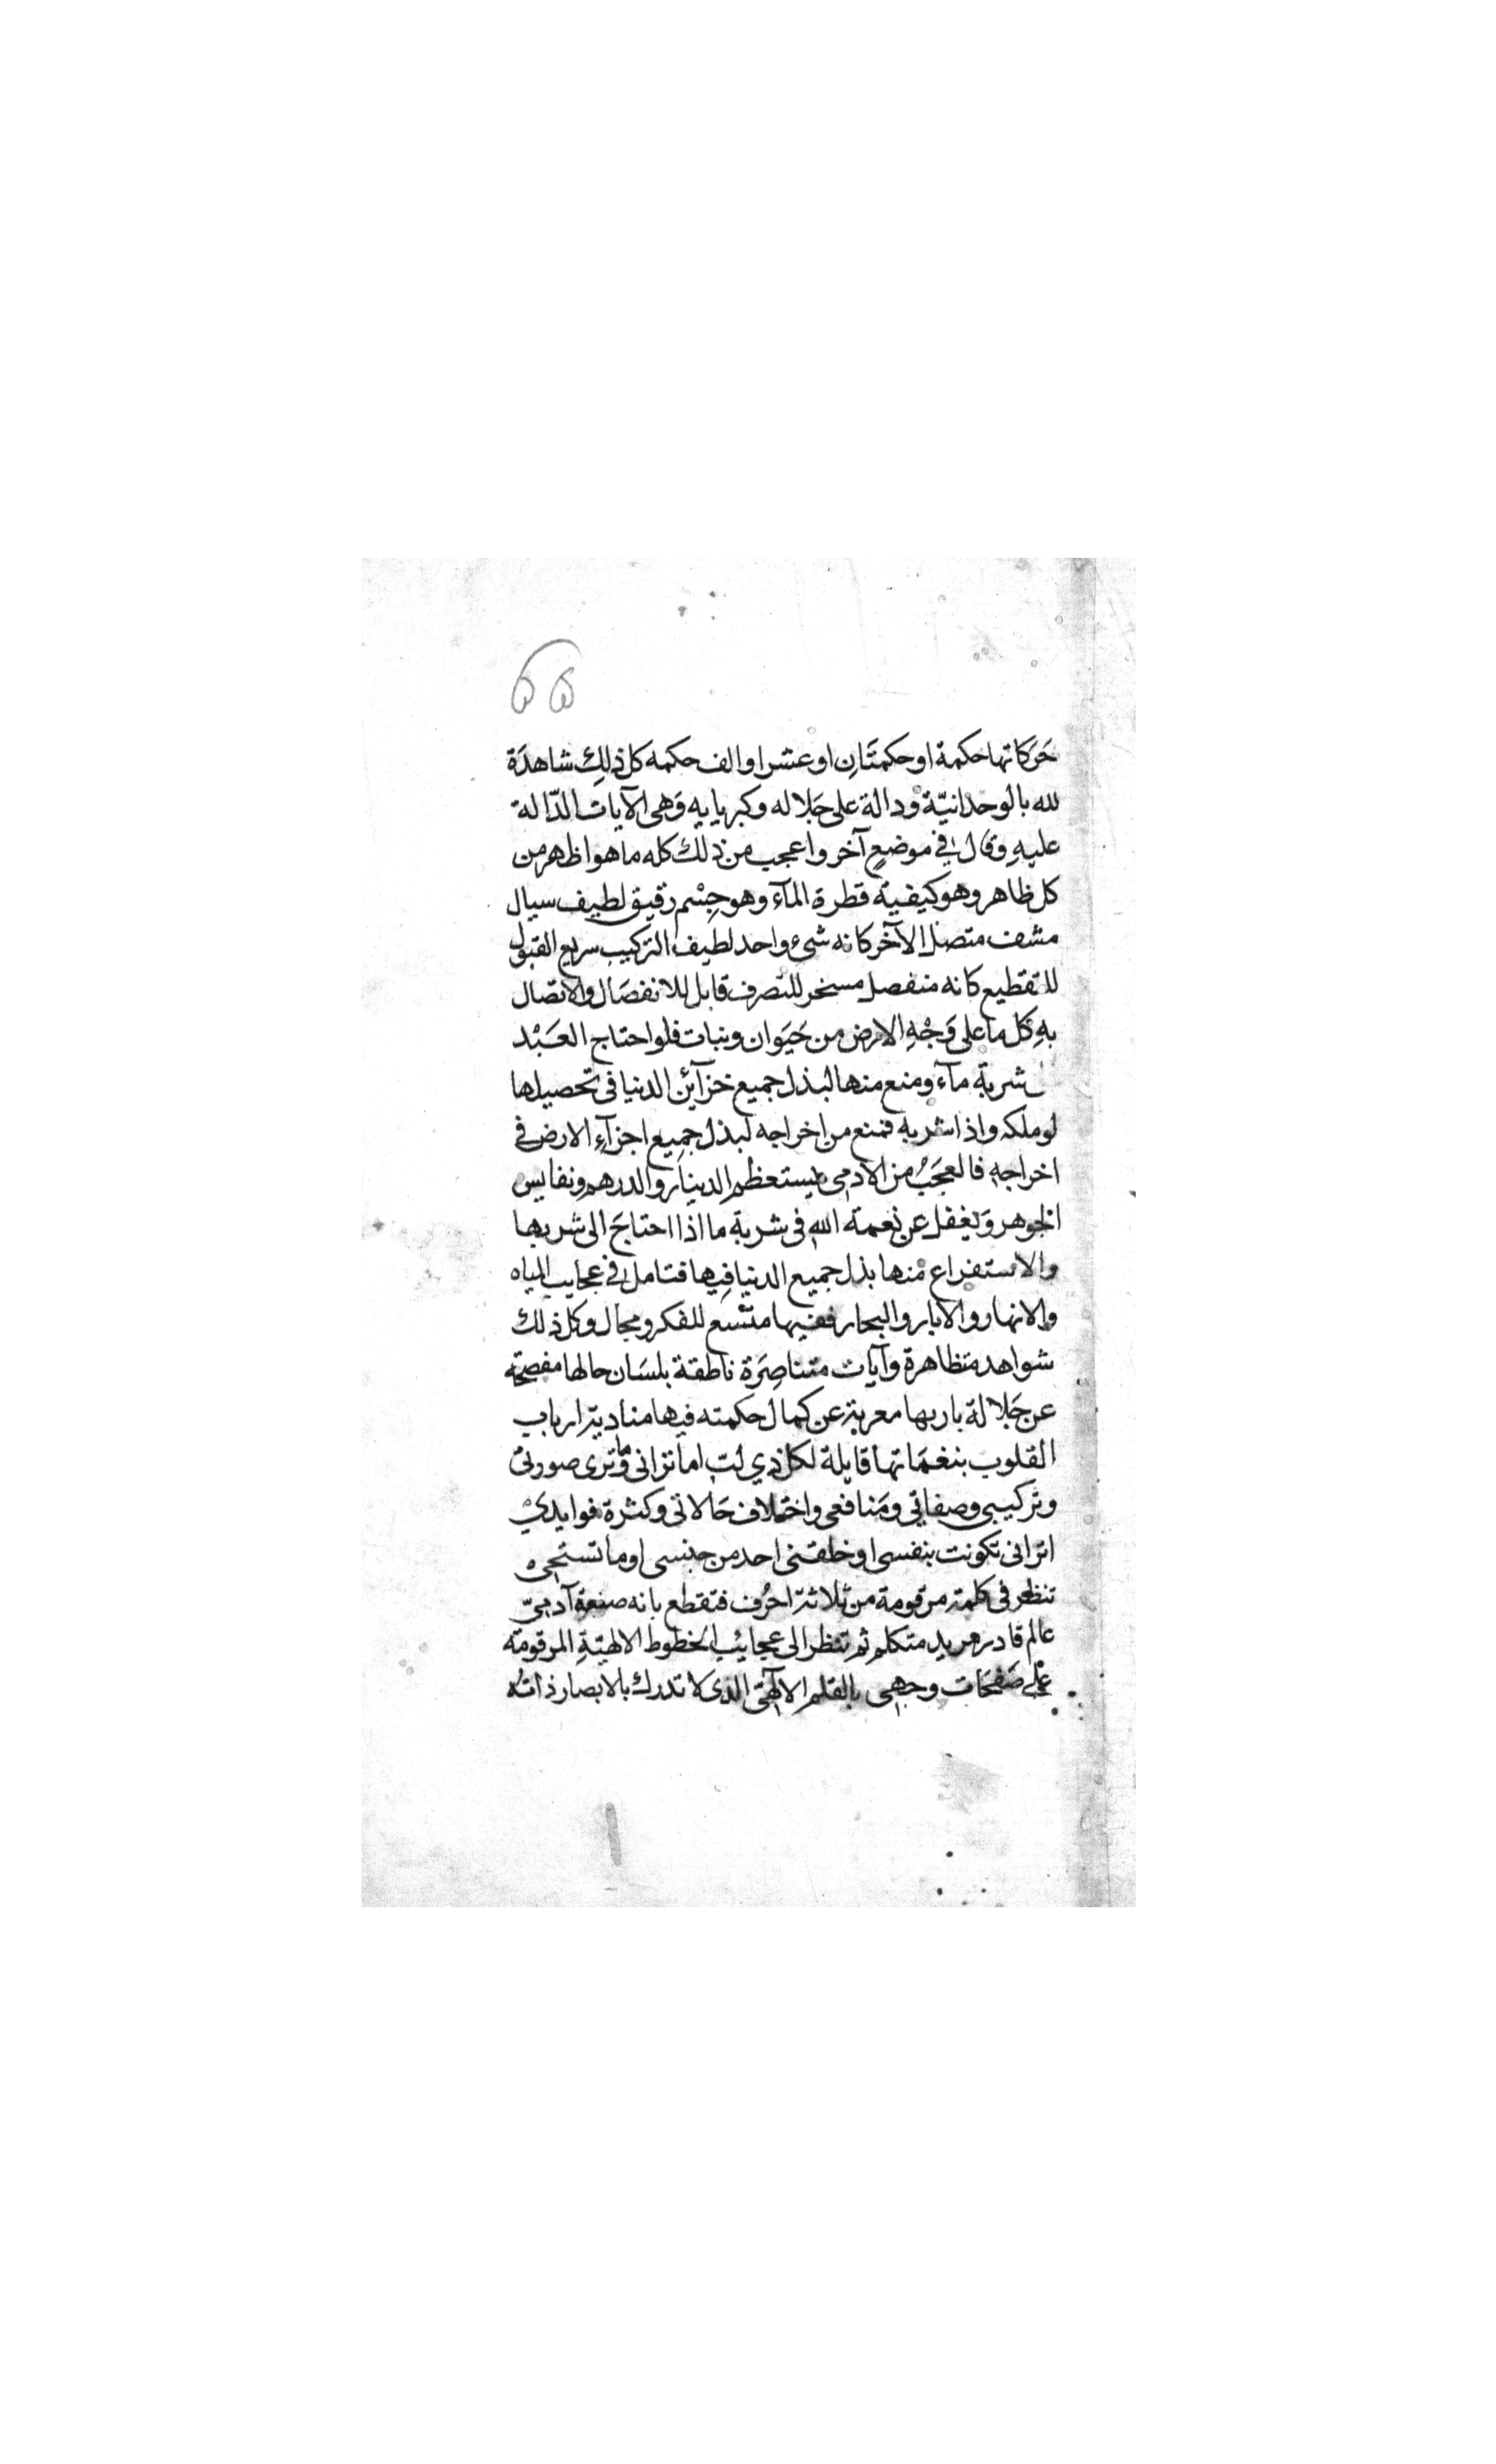 66
حَرَكاتها حكمة او حكمتَانِ او عشر او الف حكمه كل ذلِك شاهدَة
لله بالوحدانيّة ودالة على جَلاله وكبريايه وَهى الآيات الدّالة
عليهِ وقال في موضعٍ آخر واعجب من ذلك كله ما هو اظهر من
كل ظاهر وهو كيفية قطرة المآء وهو جِسْم رقيق لطيف سيال
مشف متصل الآخر كانه شىء واحد لطيف التركيب سريع القبول
للتقطيع كانه منفصل مسخر للتصرف قابل للانفصَال والاتصال
بهِ كل ما على وَجْهِ الارض من حَيَوان ونبات فلو احتاج العَبْد
شربة مآء ومنع منها لبذل جميع خزآئن الدنيا فى تحصيلها
لو ملكه واذا شربه فمنع من اخراجه لبذل جميع اجزآءِ الارض في
اخراجهِ فالعجَبُ من الادمى يستعظم الدينار والدرهم ونفايس
الجوهر وَيغفل عن نعمة الله فى شربة ما اذا احتاجَ الى شربها
والاستفراع منها بذل جميع الدنيا فيها فتامل في عجايب المياه
والانهار والابار والبحار ففيها متسع للفكر ومجال وكل ذلك
شواهد متظاهرة وآيات متناصِرَة ناطقة بلسَان حالها مفصحة
عن جَلالة باريها معربة عن كمال حكمته فيها منادية ارباب
القلوب بنغمَاتها قايلة لكل ذي لبّ اما ترانى وما ترى صورتى
وتركيبى وصفاتي ومَنافعى واختلاف حَالاتى وكثرة فوايدي
اترانى تكونت بنفسى او خلقنى احد من جنسى او ما تستحى
تنظر فى كلمة مرقومة من ثلاثة احرُف فتقطع بانه صنعة آدميّ
عالم قادر مريد متكلم ثم تنظر الى عجايب الخطوط الالهيّةِ المرقومة
على صَفحَات وجهى بالقلم الالهىّ الذى لا تدرك بالابصار ذاته